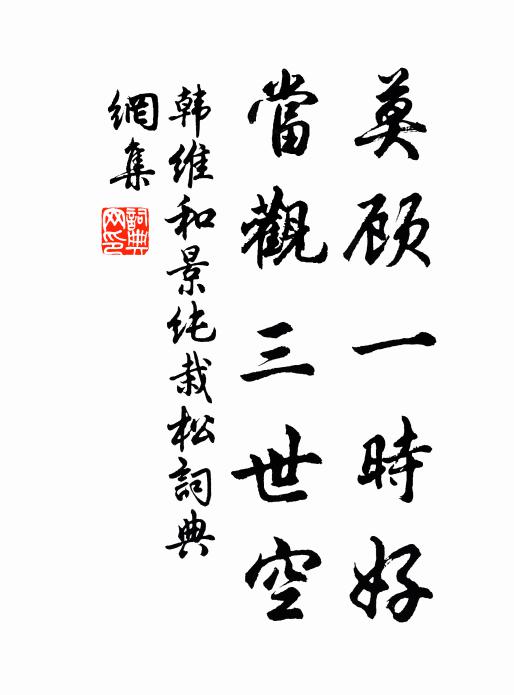 莫顾一時好
當觀三世空
韩維和景纯栽松詞典
網集
詞典網印